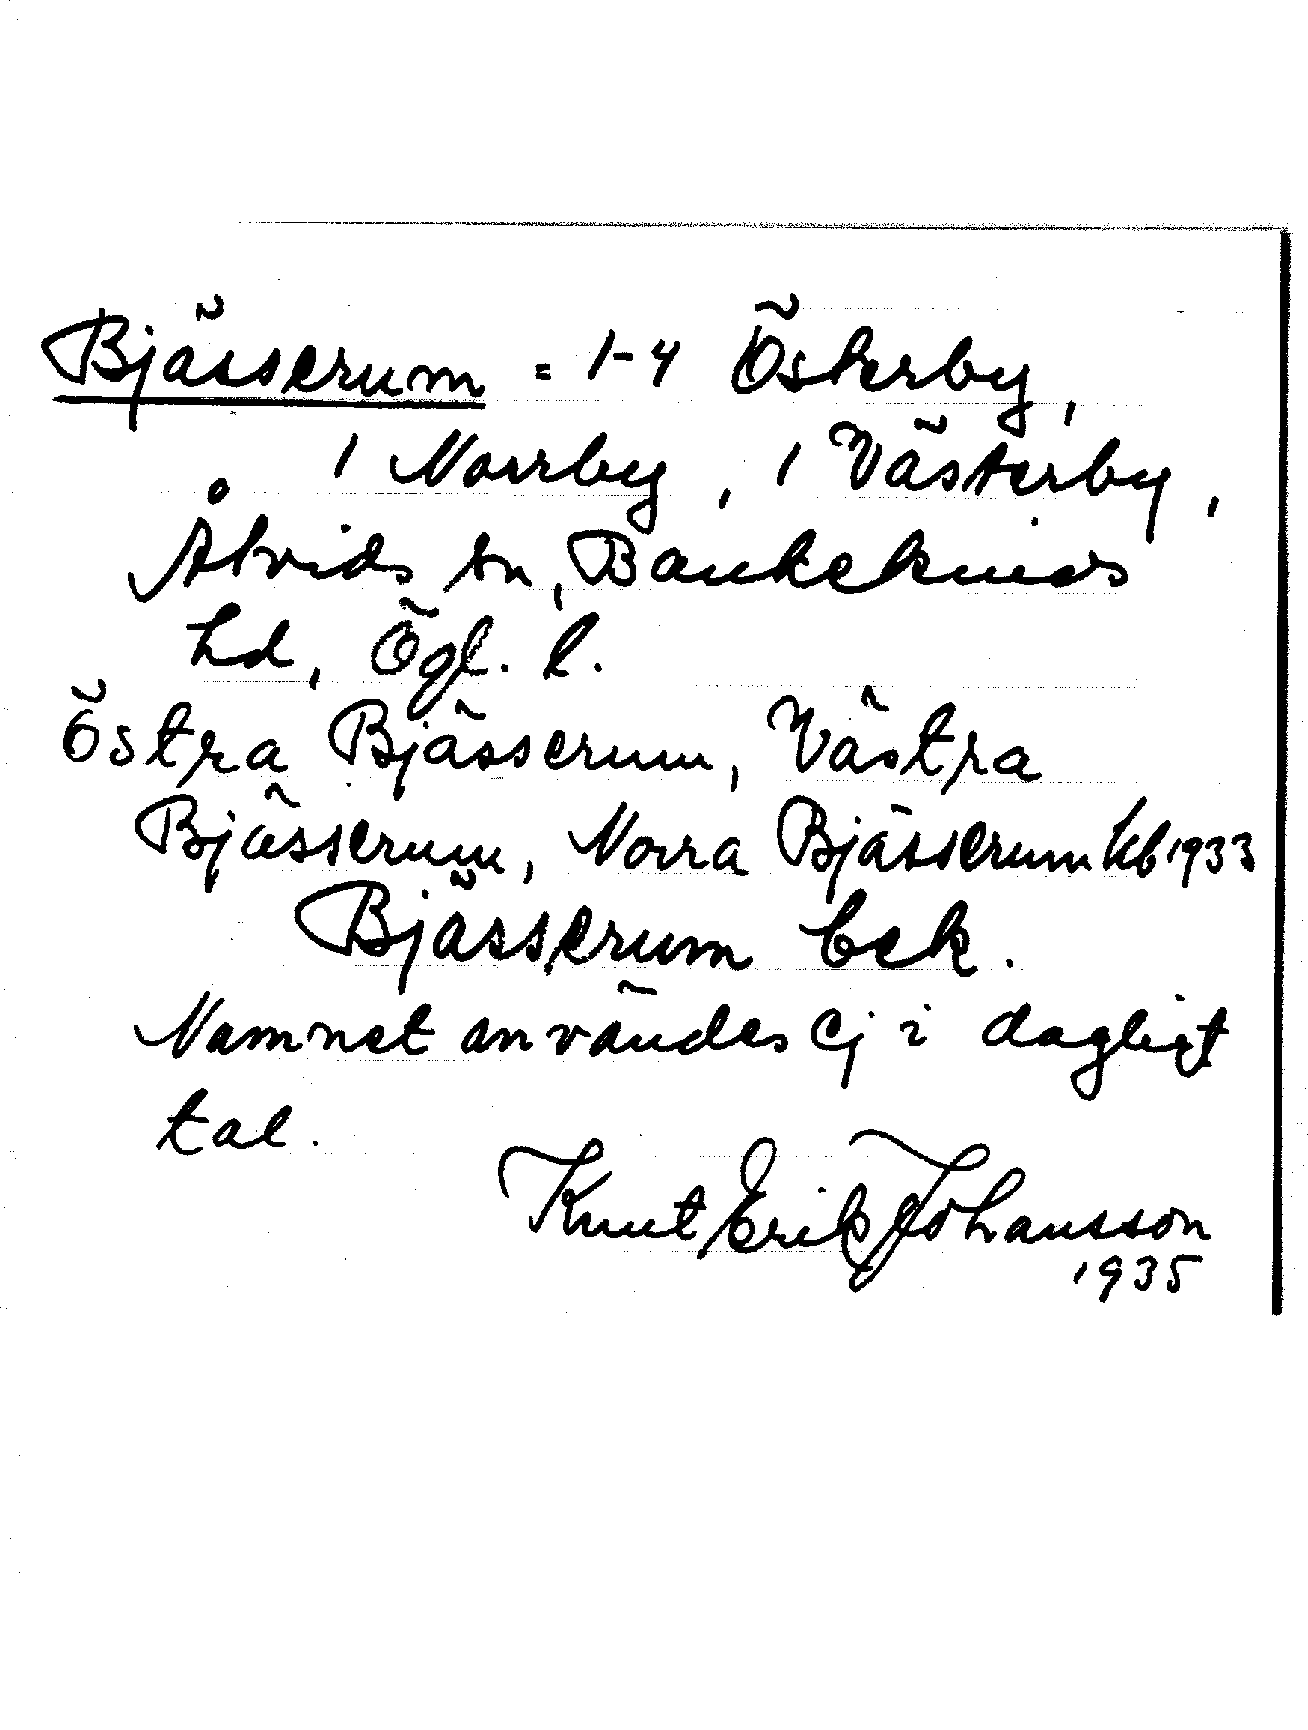 Bjässerum = 1-4 Österby,
1 Norrby, 1 Västerby,
Åtvids sn, Bankekinds
hd, Ögl. l.
Östra Bjässerum, Västra
Bjässerum, Norra Bjässerum kb 1933
Bjässerum bek.
Namnet användes ej i dagligt
tal.
Knut Erik Johansson
1935